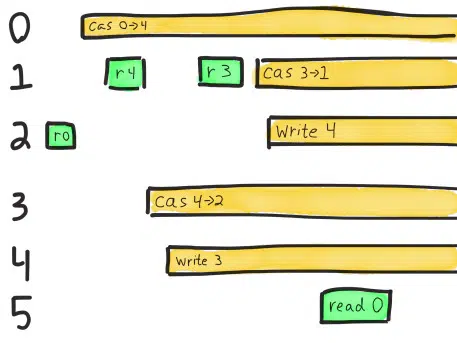 0 Cas 0→4
1 r4 r 3 Cas 3→1
2 r0 Write 4
3 Cas 4→2
4 Write 3
5 read 0